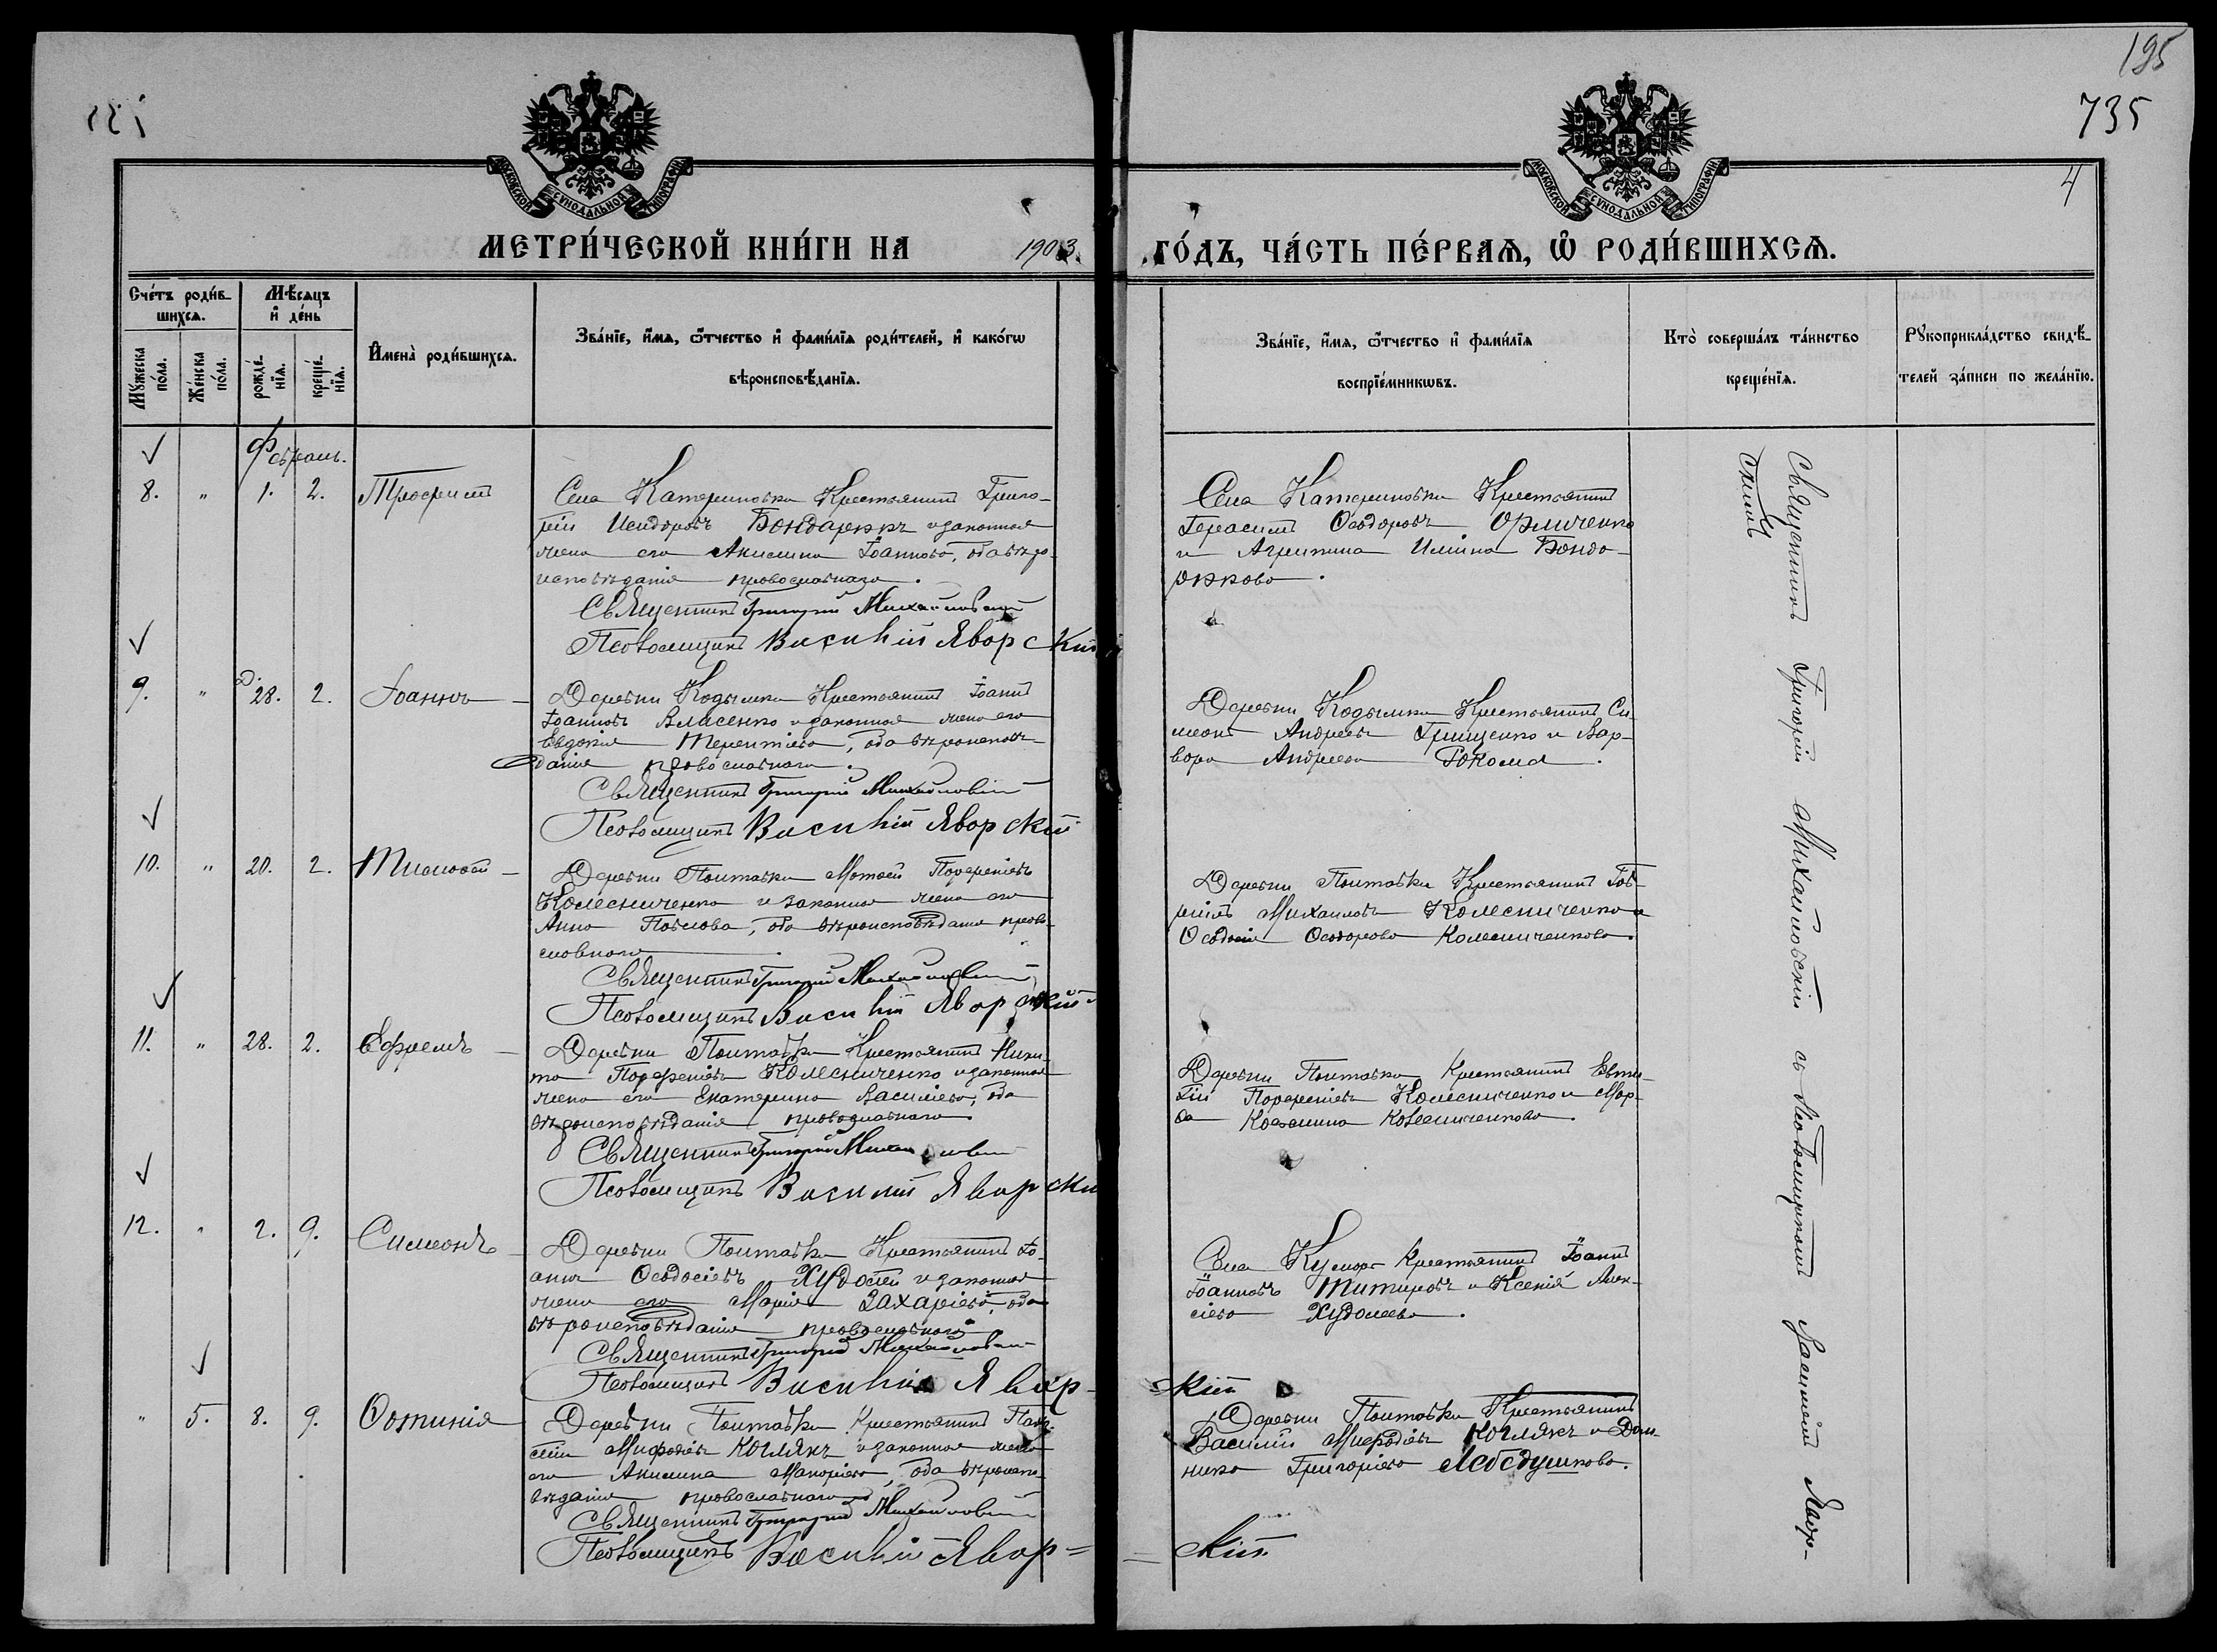 195
735
4
МОСКОВСКОЙ СѴНОДАЛЬНОЙ ТИПОГРАФІИ
МОСКОВСКОЙ СѴНОДАЛЬНОЙ ТИПОГРАФІИ
МЕТРИ́ЧЕСКОЙ КНИ́ГИ НА 1903
ГО́ДЪ, ЧА́СТЬ ПЕ́РВАЯ, Ѽ РОДИ́ВШИХСЯ.
Сче́тъ роди́в-
шихся.
Мѣ́сяцъ
и҆ де́нь
Му́жеска
по́ла.
Же́нска
по́ла.
рожде́-
нїя.
креще́-
нїя.
И҆мена̀ роди́вшихся.
Зва́нїе, и҆́мя, ѻ҆́тчество и҆ фами́лїя роди́телей, и҆ како́гѡ
вѣроисповѣ́данїя.
Зва́нїе, и҆́мя, ѻ҆́тчество и҆ фами́лїя
воспрїе́мникѡвъ.
Кто̀ соверша́лъ та́инство
креще́нїя.
Рꙋкоприкла́дство свидѣ́-
телей за́писи по жела́нїю.
Февраль.
8. " 1. 2. Трофимъ
Села Катериновки Крестьянинъ Григо-
рій Исидоровъ Бондарюкъ и законная
жена его Акилина Іоаннова, оба вѣро-
исповѣданія православнаго.
Священникъ Григорій Михайловскій
Псаломщикъ Василій Яворскій
Села Катериновки Крестьянинъ
Герасимъ Ѳеодоровъ
и Агрипина Ильина Бонда-
рюкова.
9. " 28. 2. Іоаннъ
Деревни Кодымки Крестьянинъ Іоаннъ
Іоанновъ Власенко и законная жена его
Евдокія Терентіева, оба вѣроисповѣ-
данія православнаго.
Священникъ Григорій Михайловскій
Псаломщикъ Василій Яворскій
Деревни Кодымки Крестьянинъ Си-
меонъ Андреевъ Грищенко и Вар-
вара Андреева
10. " 20. 2. Тимофей
Деревни Полтавки Матѳей Порфиріевъ
Колесниченко и законная жена его
Анна Павлова, оба вѣроисповѣданія право-
славнаго.
Священникъ Григорій Михайловскій
Псаломщикъ Василій Яворскій
Деревни Полтавки Крестьянинъ Гав-
ріилъ Михайловъ Колесниченко и
Ѳеодосія Ѳеодорова Колесниченкова.
11. " 28. 2. Ефремъ
Деревни Полтавки Крестьянинъ Ники-
та Порфиріевъ Колесниченко и законная
жена его Екатерина Василіева, оба
вѣроисповѣданія православнаго.
Священникъ Григорій Михайловскій
Псаломщикъ Василій Яворскій
Деревни Полтавки Крестьянинъ Евти-
хій Порфиріевъ Колесниченко и Мар-
ѳа Космина Колесниченкова.
12. " 2. 9. Симеонъ
Деревни Полтавки Крестьянинъ Іо-
аннъ Ѳеодосіевъ Худолей и законная
жена его Марія Захаріева, оба
вѣроисповѣданія православнаго
Священникъ Григорій Михайловскій
Псаломщикъ Василій Явор-
скій
Села Крестьянинъ Іоаннъ
Іоанновъ Титаровъ и Ксенія Алек-
сіева Худолеева.
" 5. 8. 9. Фотинія
Деревни Полтавки Крестьянинъ
Меѳодіевъ Коглякъ и законная жена
его Акилина Макаріева, оба вѣроиспо-
вѣданія православнаго
Священникъ Григорій Михайловскій
Псаломщикъ Василій Явор-
скій
Деревни Полтавки Крестьянинъ
Василій Меѳодіевъ Коглякъ и Дом-
ника Григоріева Лебедушкова.
Священникъ Григорій Михайловскій съ Псаломщикомъ Василіемъ Явор-
скимъ